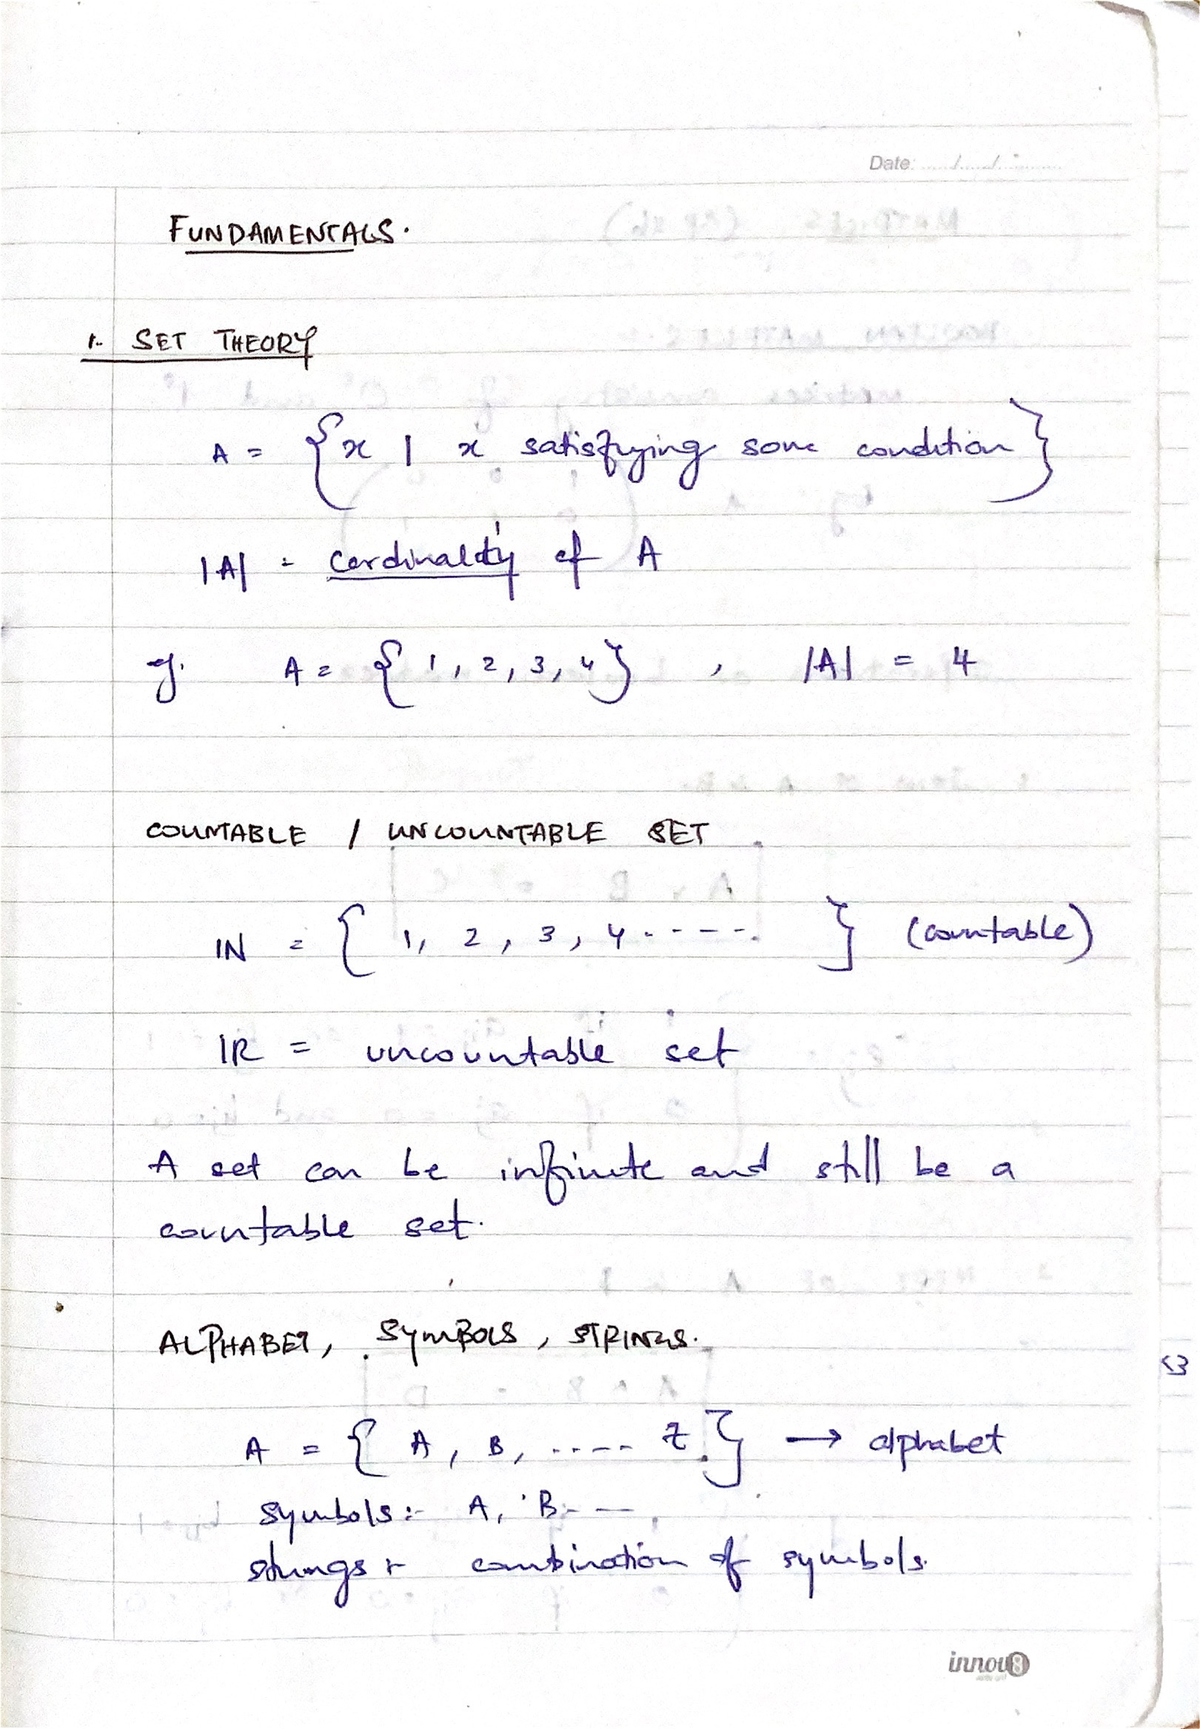 Date: ...../...../............
FUNDAMENTALS.
1. SET THEORY
A = {x | x satisfying some condition}
|A| = cardinality of A
eg. A = {1, 2, 3, 4} , |A| = 4
COUNTABLE / UNCOUNTABLE SET
IN = {1, 2, 3, 4 - - - - - } (countable)
IR = uncountable set
A set can be infinite and still be a
countable set.
ALPHABET, SYMBOLS, STRINGS.
A = {A, B, ..... Z} → alphabet
symbols:- A, B - - -
strings :- combination of symbols.
innov8